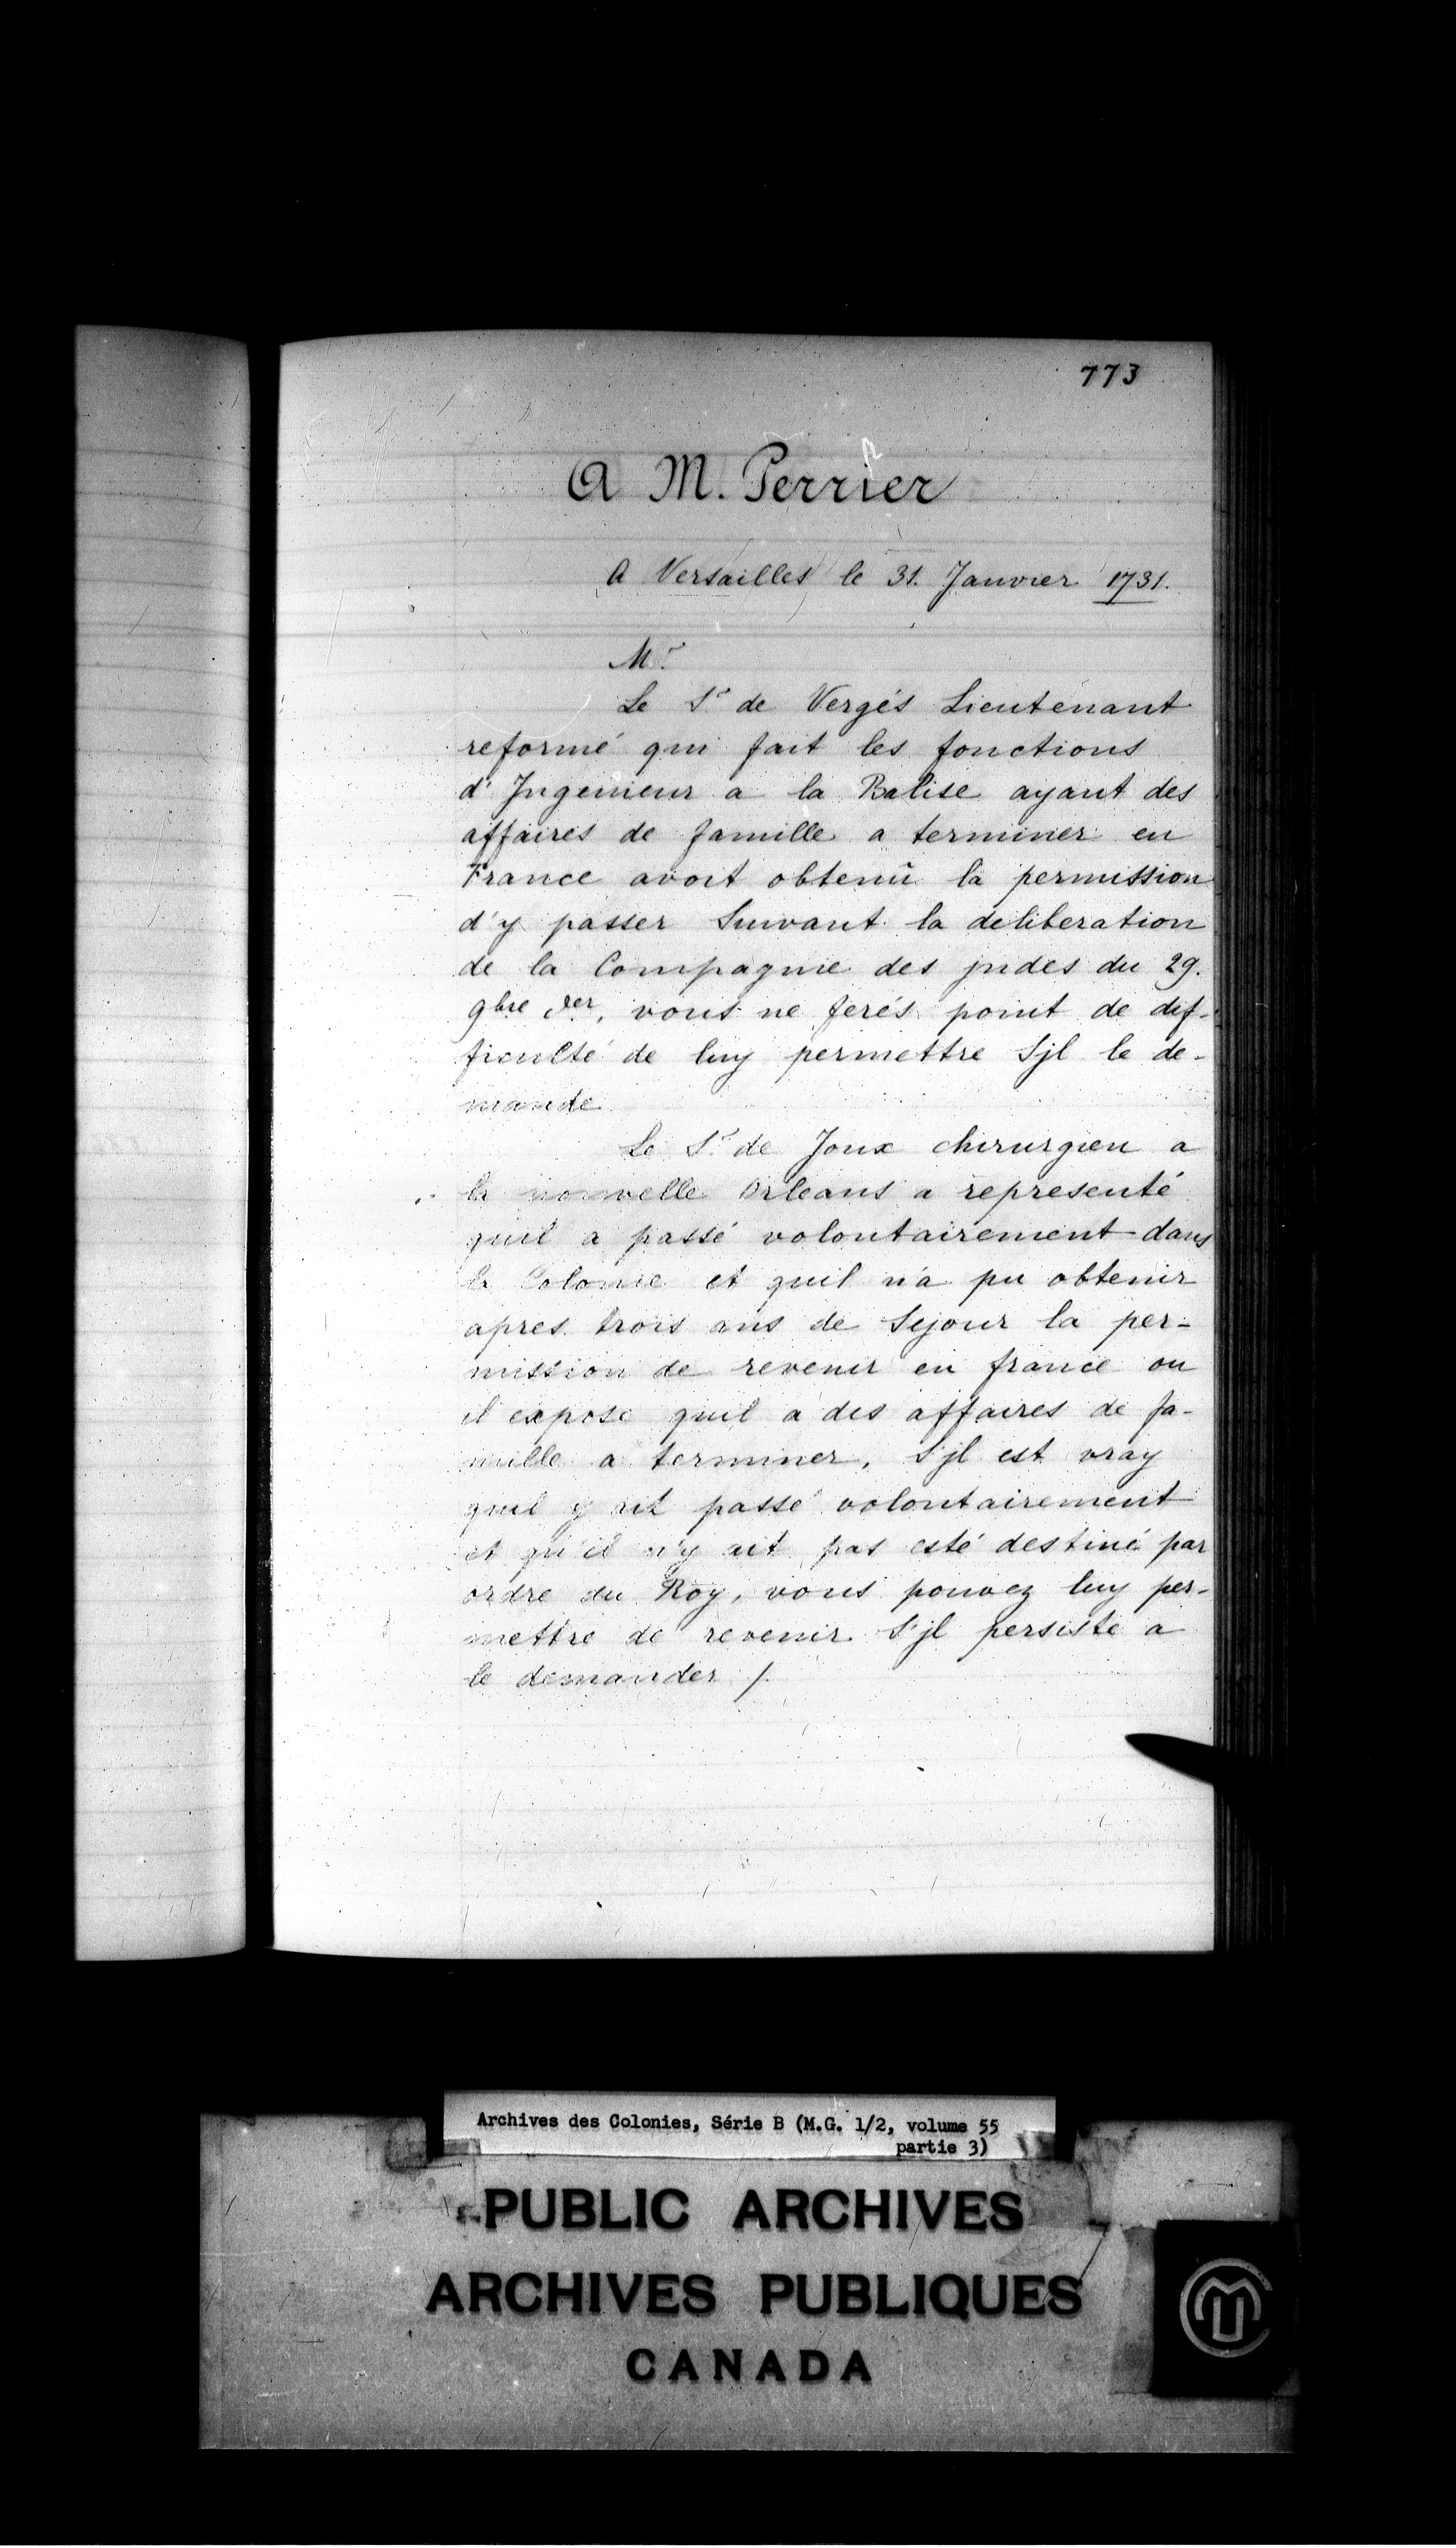 773
A M. Perrier
A Versailles le 31. Janvier 1731.
Mr
Le Sr de Vergés Lieutenant
reformé qui fait les fonctions
d'Ingenieur a la Balise ayant des
affaires de famille a terminer en
France avoit obtenû la permission
d'y passer Suivant la deliberation
de la Compagnie des jndes du 29.
9bre der, vous ne ferés point de dif-
ficulté de luy permettre Sjl le de-
mande
Le Sr de Joux chirurgien a
la nouvelle Orleans a representé
quil a passé volontairement dans
la Colonie et quil n'a pu obtenir
apres trois ans de Sejour la per-
mission de revenir en france ou
il expose quil a des affaires de fa-
mille a terminer, S'jl est vray
quil y ait passé volontairement
et qu'il n'y ait pas esté destiné par
ordre du Roy, vous pouvez luy per-
mettre de revenir S'jl persiste a
le demander /.
Archives des Colonies, Série B (M.G. 1/2, volume 55
partie 3)
PUBLIC ARCHIVES
ARCHIVES PUBLIQUES
CANADA